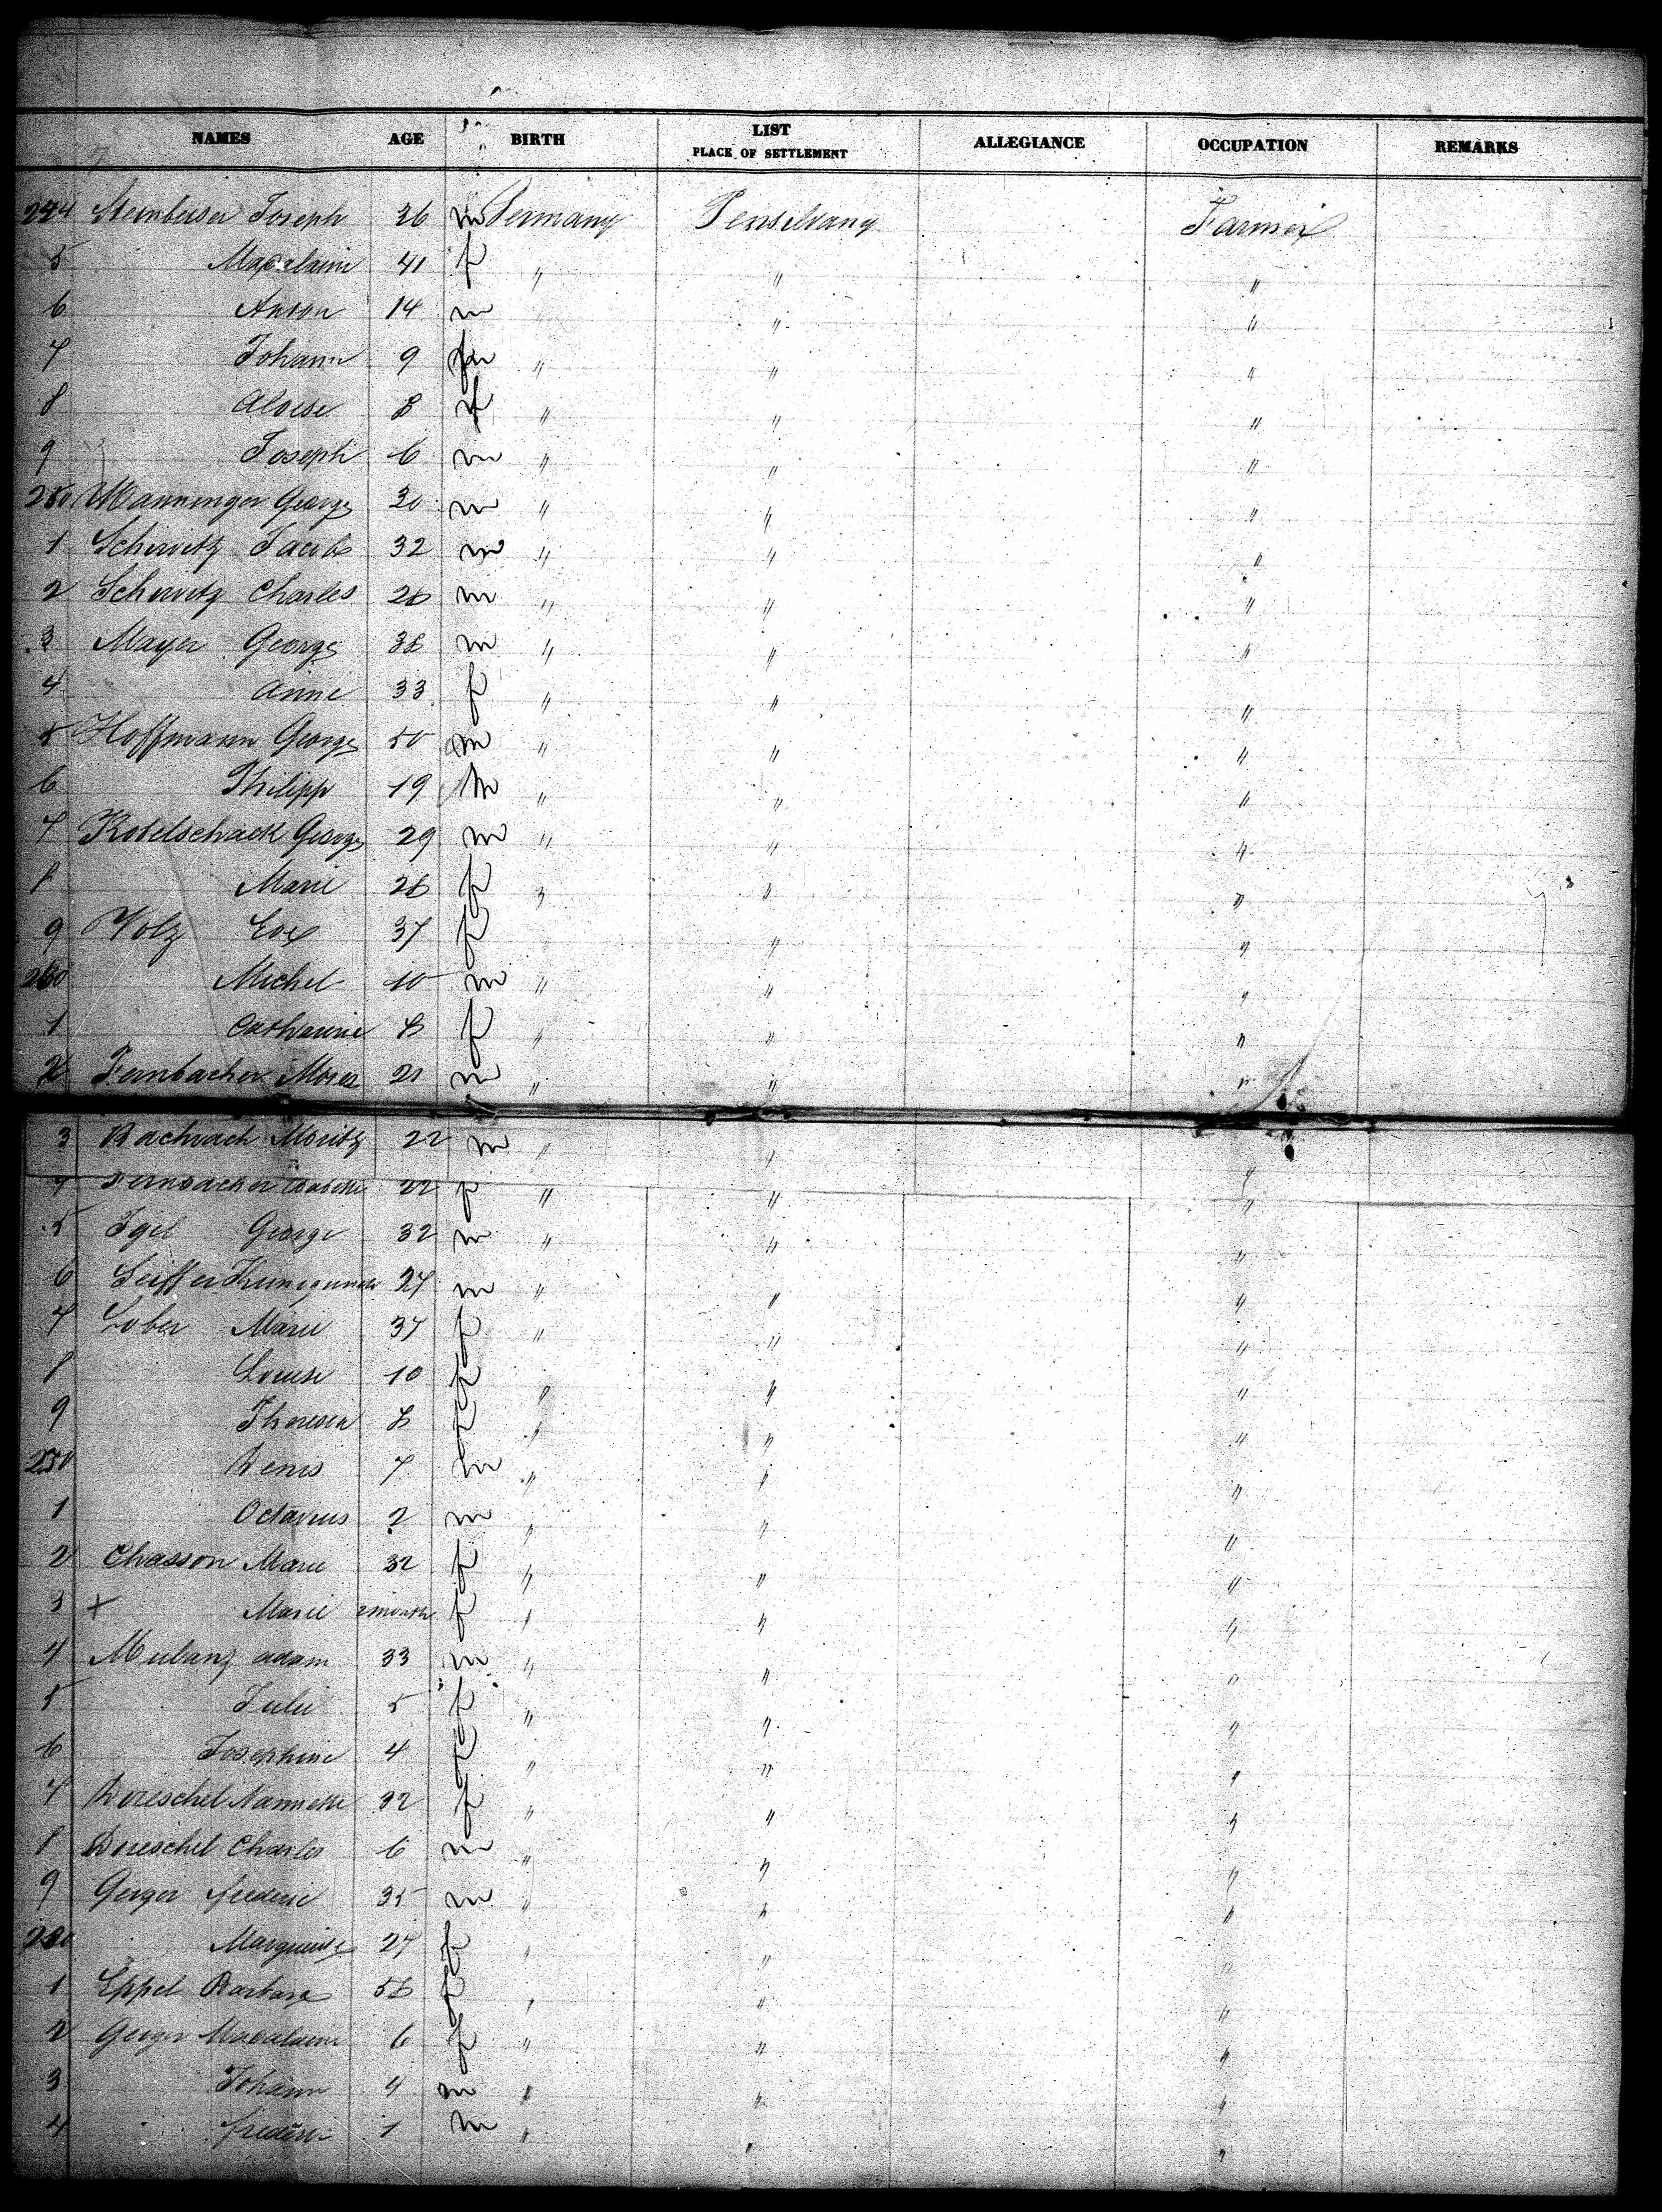 NAMES AGE BIRTH LIST PLACE OF SETTLEMENT ALLEGIANCE OCCUPATION REMARKS
244 Joseph 36 m Germany Farmer
5 Madalaine 41 f " " "
6 Anton 14 m " "
7 Johann 9 " " "
8 Aloise 8 f " " "
9 Joseph 6 m " " "
250 Manninger George 30 m " " "
1 Schiwitz Jacob 32 m " " "
2 Schiwitz Charles 28 m " " "
3 Mayer George 38 m " " "
4 Anne 33 f " " "
5 Hoffmann George 50 m " " "
6 Philipp 19 m " " "
7 Kobelschack George 29 m " " "
8 Marie 28 f " " "
9 Volz Eve 37 f " "
260 Michel 10 m " " "
1 Catharine 8 f " " "
2 Fernbacher Moses 21 m " " "
3 Bachrach Moritz 22 m " " "
4 Fernbacher 22 f " " "
5 Igel George 32 m " " "
6 Seiffer Kunegunde 27 m " " "
7 Lober Marie 37 f " " "
8 Louise 10 f " " "
9 Theresia 8 f " " "
250 Denis 7 m " " "
1 Octavius 2 m " " "
2 Chasson Marie 32 f " " "
3 + Marie 2 month f " " "
4 adam 33 m " " "
5 Julie 5 f " " "
6 Josephine 4 f " " "
7 Doreschel Nannette 32 f " " "
8 Doreschel Charles 6 m " " "
9 Geiger frederic 35 m " " "
280 Marguerite 27 f " " "
1 Eppel Barbara 58 f " " "
2 Geiger Madalaine 6 f " " "
3 Johann 4 m " " "
4 frederic 1 m " " "